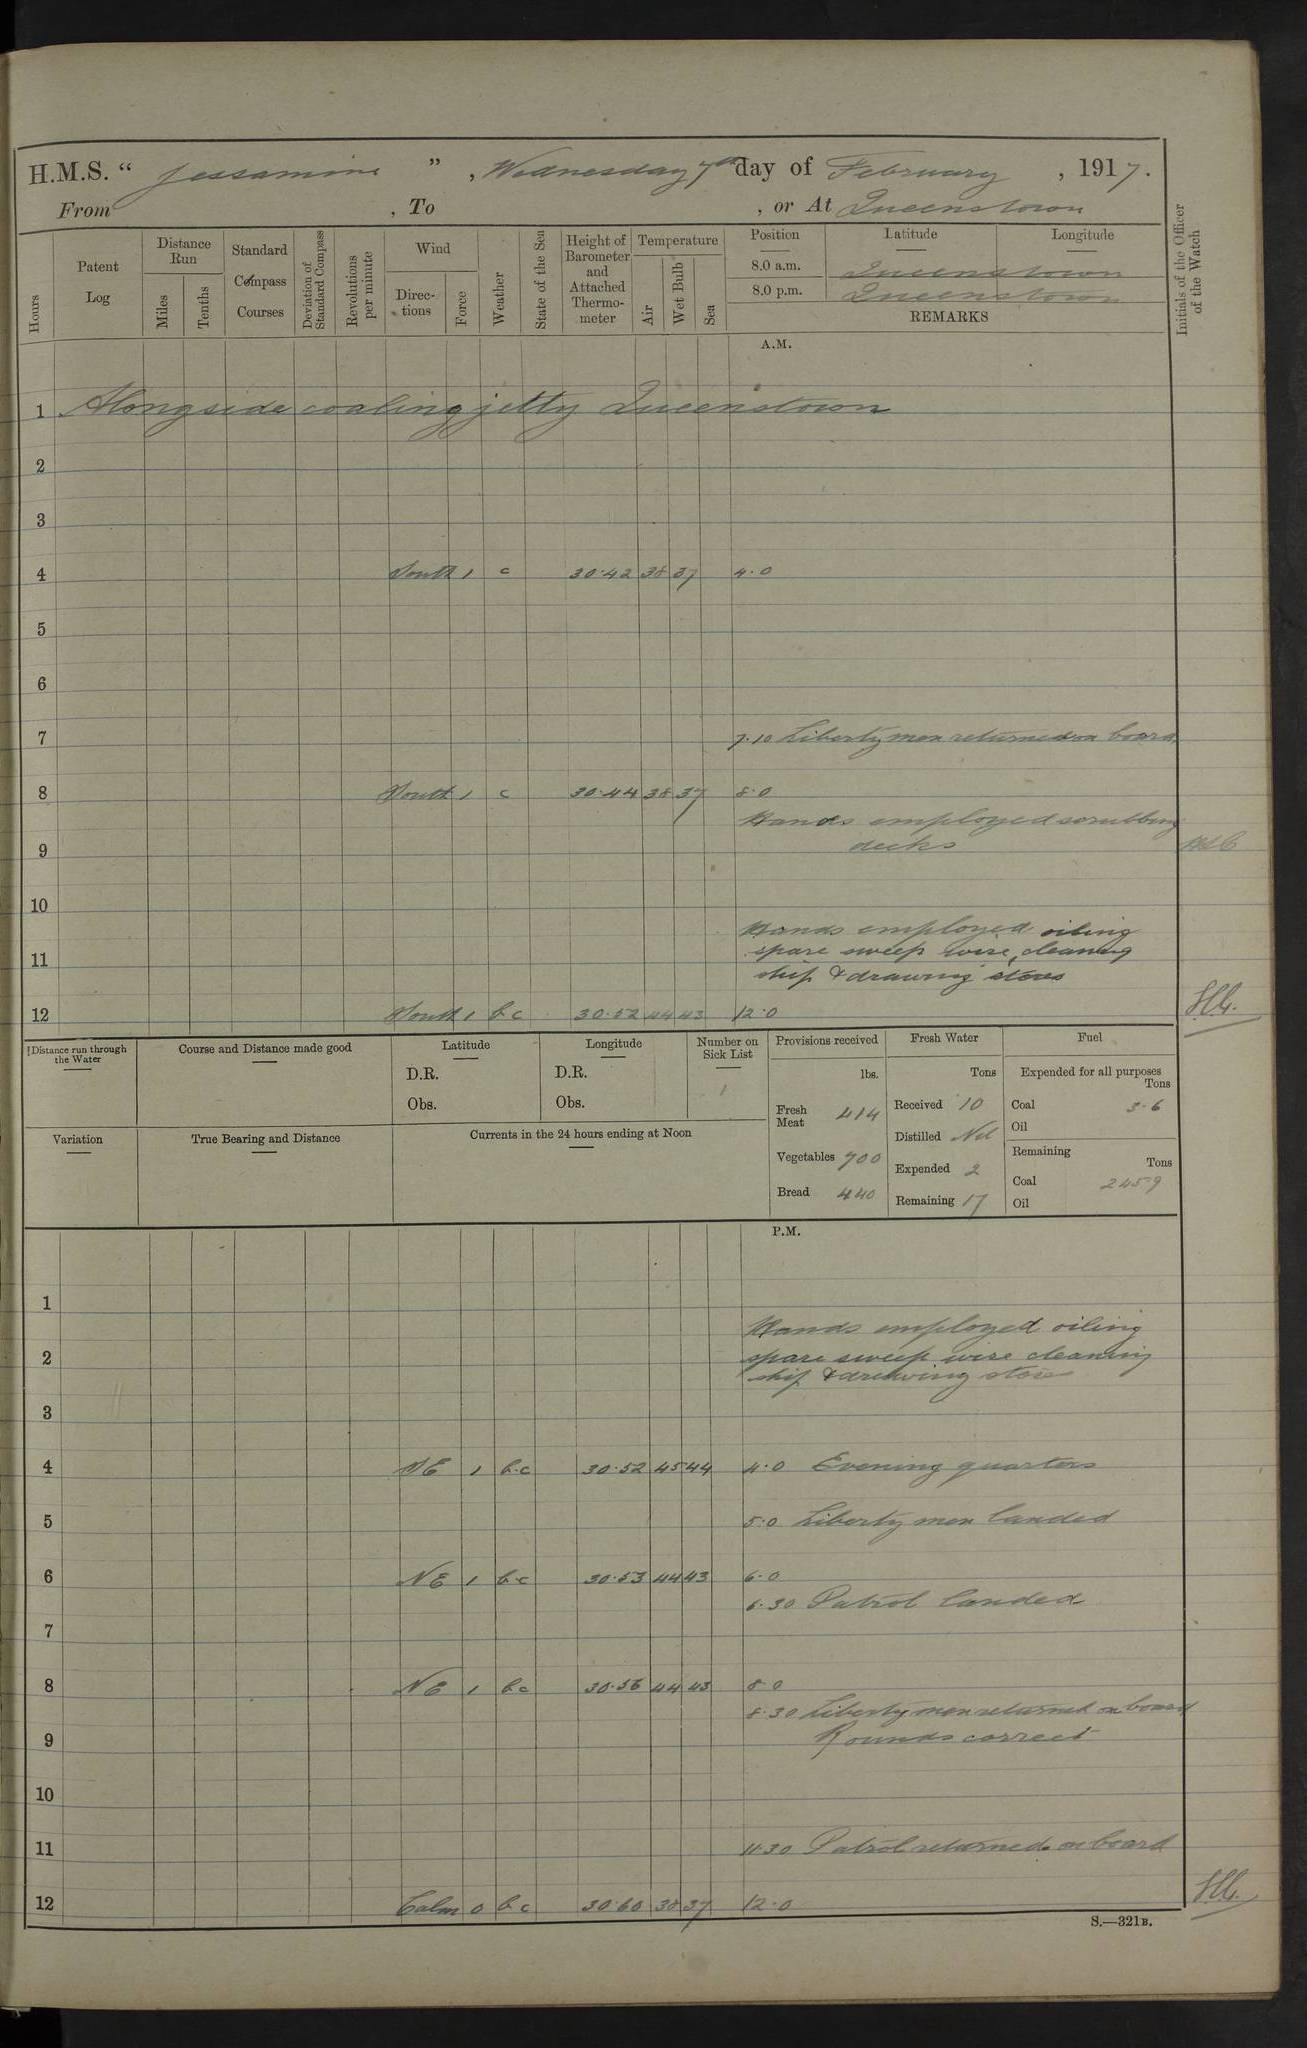 H.M.S. “ Jessamine ” , Wednesday 7th day of February , 1917.
From , To , or At Queenstown
Hours
Patent Log
Distance Run
Miles
Tenths
Standard Compass Courses
Deviation of Standard Compass
Revolutions per minute
Wind
Direc-tions
Force
Weather
State of the Sea
Height of Barometer and Attached Thermo-meter
Temperature
Air
Wet Bulb
Sea
Position Latitude Longitude
8.0 a.m. Queenstown
8.0 p.m. Queenstown
REMARKS
Initials of the Officer of the Watch
A.M.
1 Alongside coaling jetty Queenstown
2
3
4 South 1 c 30.42 38 37 4.0
5
6
7 7.10 Liberty men returned on board
8 South 1 c 30.44 38 37 8.0
Hands employed scrubbing
9 decks
10
Hands employed oiling
11 spare sweep wire, cleaning
ship & drawing stores
12 South 1 b c 30.52 44 43 12.0
Distance run through the Water
Course and Distance made good
Latitude
D.R.
Obs.
Longitude
D.R.
Obs.
Number on Sick List
1
Variation
True Bearing and Distance
Currents in the 24 hours ending at Noon
Provisions received
lbs.
Fresh Meat 414
Vegetables 700
Bread 440
Fresh Water
Tons
Received 10
Distilled Nil
Expended 2
Remaining 17
Fuel
Expended for all purposes
Tons
Coal 3.6
Oil
Remaining
Tons
Coal 2459
Oil
P.M.
1
Hands employed oiling
2 spare sweep wire cleaning
ship & drawing stores
3
4 1 b.c 30.52 45 44 4.0 Evening quarters
5 5.0 Liberty men landed
6 NE 1 b.c 30.53 44 43 6.0
6.30 Patrol landed
7
8 NE 1 b.c 30.56 44 43 8.0
8.30 Liberty men returned on board
9 Rounds correct
10
11 11.30 Patrol returned on board
12 Calm 0 b.c 30.60 38 37 12.0
S.—321B.